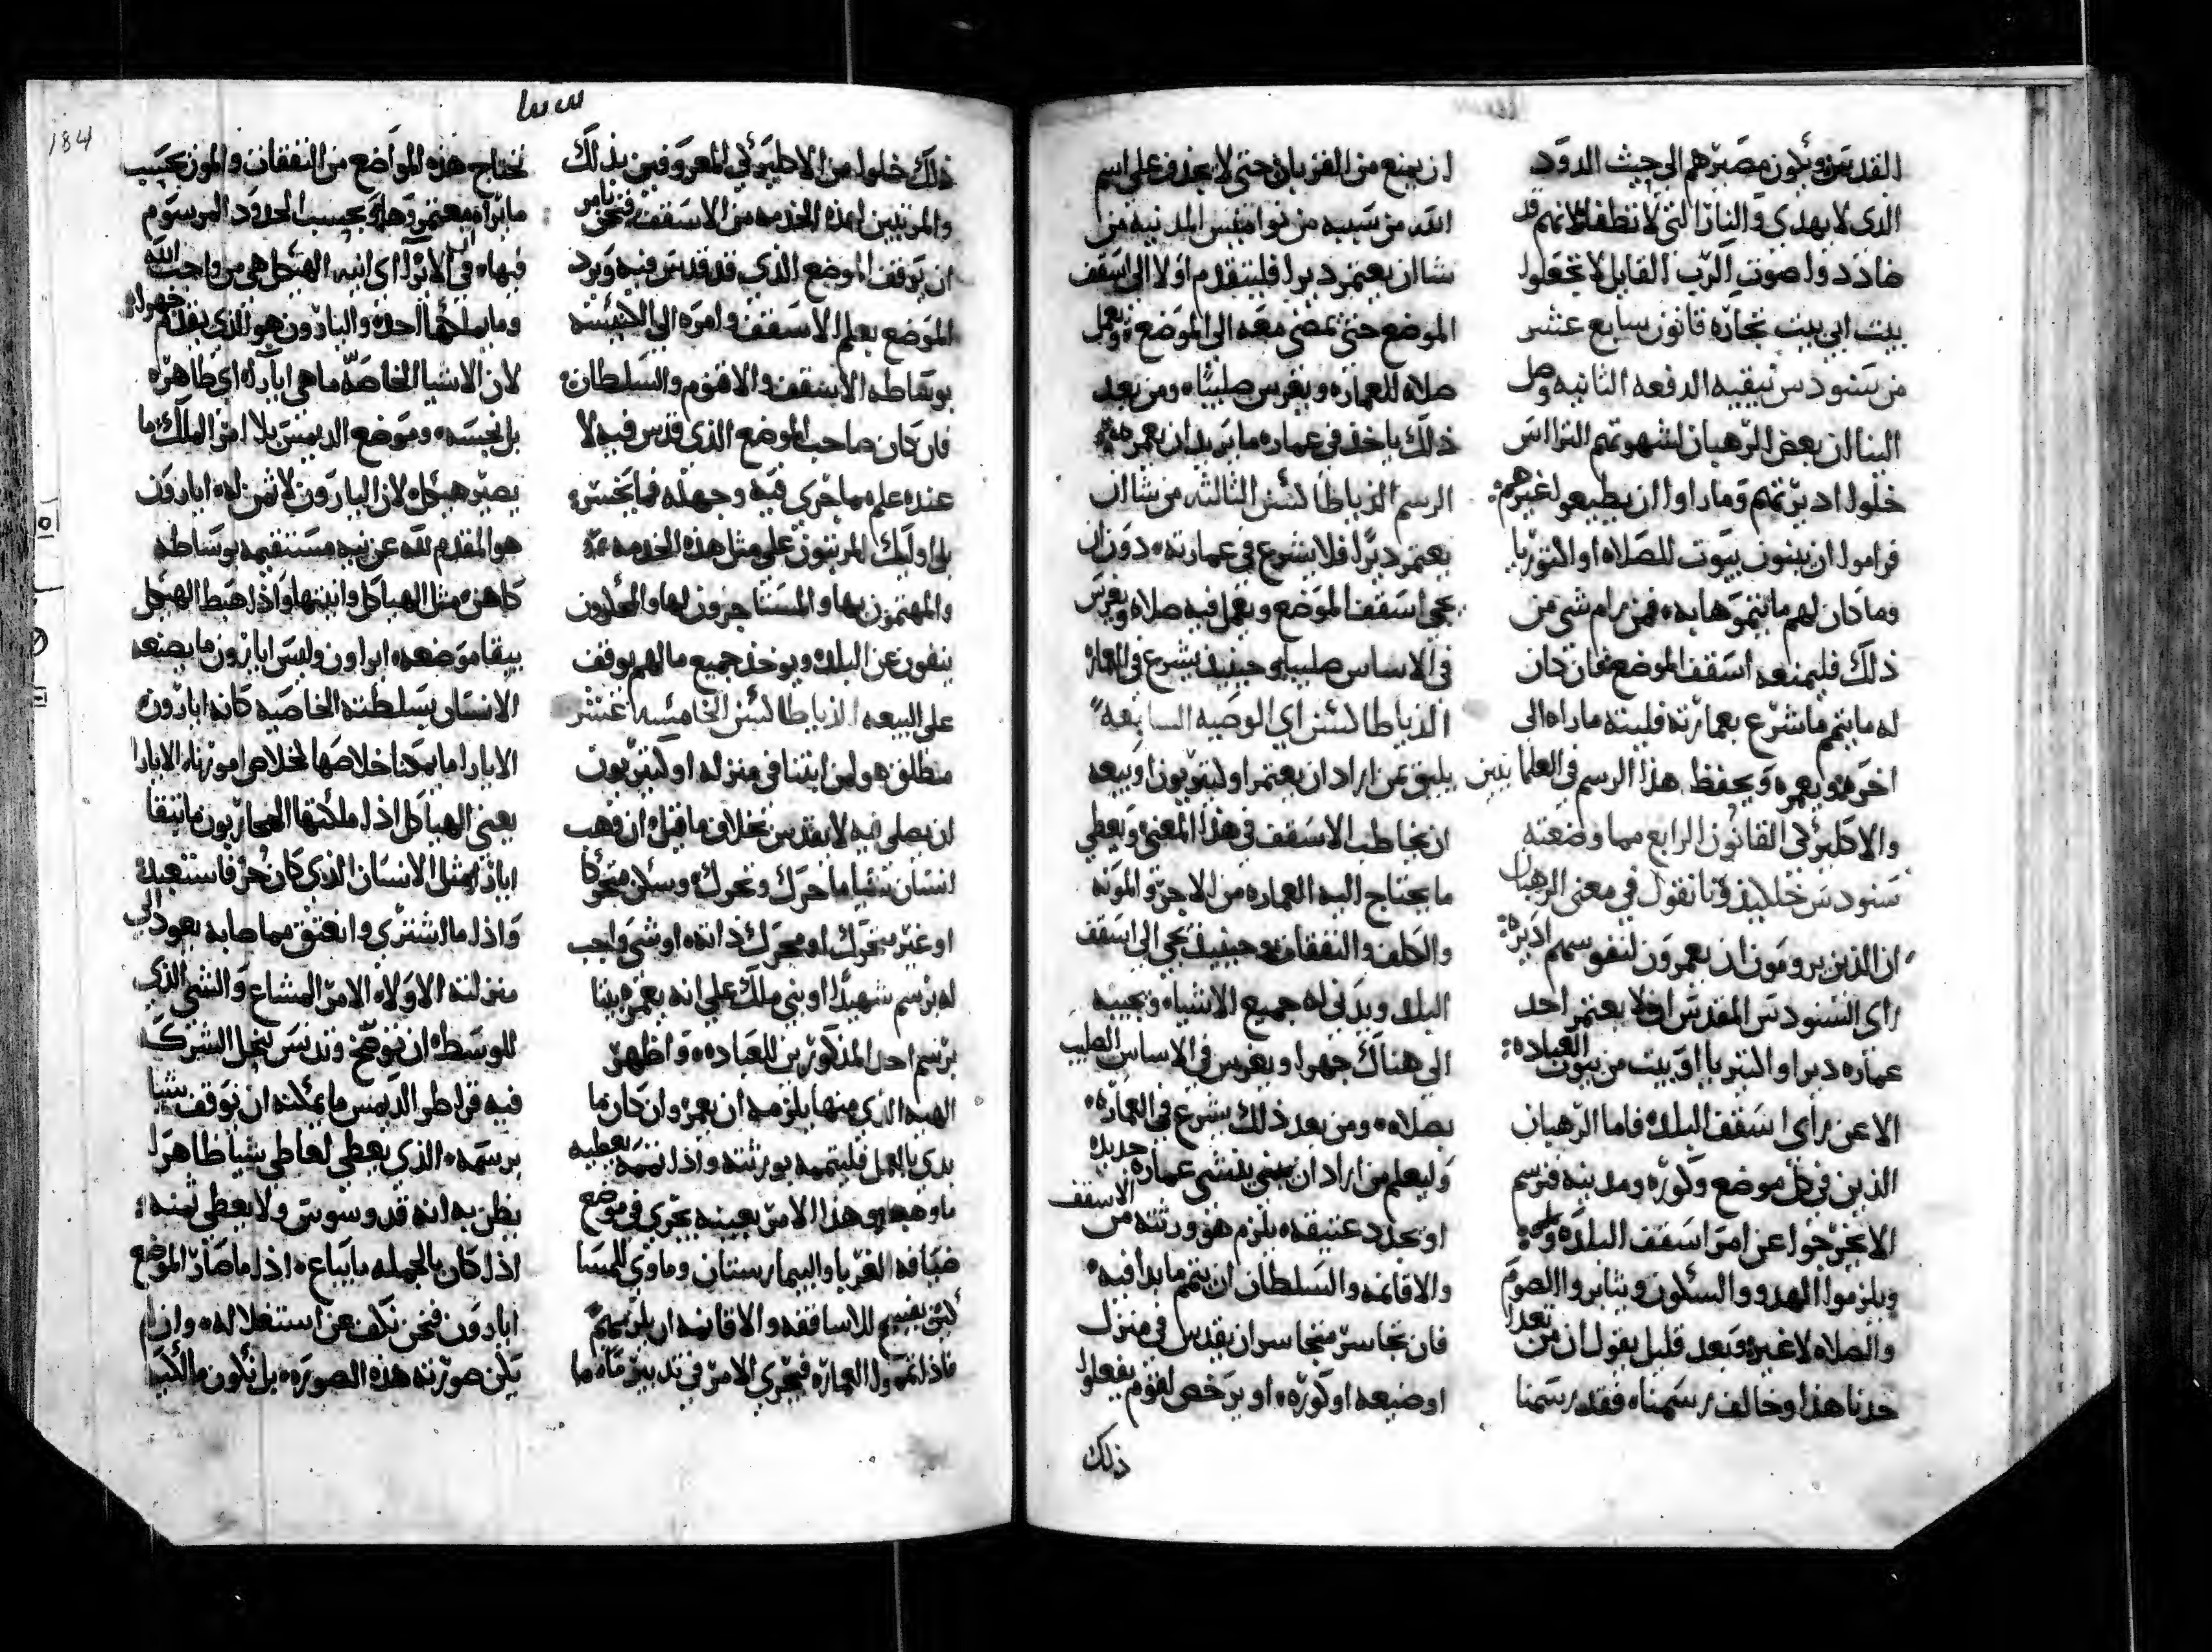 القديس ويكون مصيرهم الى حيث الدود
الذي لا يهدي والنار التي لا تطفا لانهم قد
ضاددوا صوت الرب القايل لا تجعلوا
بيت ابي بيت تجاره قانون سابع عشر
من سنودس نيقيه الدفعه الثانيه وصل
الينا ان بعض الرهبان لشهوتهم التراس
خلوا اديرتهم وما راوا ان يطيعو لغيرهم
فراموا ان يبنون بيوت للصلاه او الفتوريا
وما كان لهم ما يتموها به فمن رام شي من
ذلك فليمنعه اسقف الموضع فان كان
له ما يتم ما شرع بعمارته فليبته ما راه الى
اخره ويعمره ويحفظ هذا الرسم في العلمانيين
والاكليرقي القانون الرابع مما وضعته
سنودس خلقيذونا نقول في معنى الرهبان
ان الذين يرومون ان يعمرون لنفوسهم اديره
راى السنودس المقدس ان لا يعتمر احد
عماره دير او البتريا او بيت من بيوت العباده
الا عن راى اسقف البلد فاما الرهبان
الذين في كل موضع وكوره ومدينه فنرسم
الا يخرجوا عن امر اسقف البلده
ويلزموا الهدوو والسكون ويثابروا الصوم
والصلاه لا غير وبعد قليل يقول ان من تعدا
حدنا هذا وخالف رسمنا فقد رسمنا
ان يمنع من القربان حتى لا يجدف على اسم
الله من سببه من نواميس المدنيه من
شا ان يعتمر ديرا فليتقدم اولا الى اسقف
الموضع حتى يمضي معه الى الموضع ويعمل
صلاه للعماره ويغرس صليبا ومن بعد
ذلك ياخذ في عماره ما يريد ان يعمره
الرسم الذياطاكسس الثالثه من شا ان
يعتمر ديرا فلا يشرع في عمارته دون ان
يجي اسقف الموضع ويعمل فيه صلاه ويغرس
في الاساس صليبا وحينيذ يشرع في العماره
الذياطاكسس اي الوصيه السابعه
يليق بمن اراد ان يعتمر اوليقتريون او بيعه
ان يخاطب الاسقف في هذا المعنى ويعطي
ما يحتاج اليه العماره من الاجر والمونه
والكلف والنفقات وحينيذ يجي الى اسقف
البلد ويدني له جميع الاشيا ويجيبه
الى هناك جهرا ويغرس في الاساس الصليب
بصلاه ومن بعد ذلك يشرع في العماره
وليعلم من اراد ان يبني ينشي عماره جديده
او يجدد عتيقه يلزم هو ورثته من الاسقف
والاقانمه والسلطان ان يتم ما بدا فيه
فان تجاسر متجاسر ان يقدس في منزل
او ضيعه او كوره او يرخص لقوم يفعلوا
ذلك
ذلك خلوا من الاكليرقي المعروفين بذلك
والمرتبين لهذه الخدمه من الاسقف فنحن نامر
ان يوقف الموضع الذي قد قدس فيه ويرد
الموضع بعلم الاسقف وامره الى الكنيسه
بوساطه الاسقف والاقنوم والسلطان
فان كان صاحب الموضع الذي قدس فيه لا
عنده علم مما جرى فيه وجهله فما يخسر
بل اوليك المرتبون على مثل هذه الخدمه
والمهتمون بها والمستاجرون لها والمعلمون
ينفون عن البلد ويوخذ جميع ما لهم يوقف
على البيعه الذياطاكسس الخامسه عشر
منطلق هو لمن ابتنا في منزله اوليقتريون
ان يصلي فيه لا يقدس بخلاف ما قيل ان وهب
انسان شيا ما حرك وتحرك وسكن متحركا
او غير متحرك او محرك ذاته او شي واجب
له برسم شهيد او بني ملك على انه يعمر بيتا
برسم احد المذكورين للعباده واظهر
الهبه الذي منها يلزمه ان يعمر وان كان ما
بدي بالعمل فليتممه بورثته واذا تممه يعطيه
ما وهبه وهذا الامر بعينه يجري في موضع
ضيافه الغربا والبيمارستان وماوى للمسا
كين يفسح للاساقفه والاقانمه ان يلزمهم
فاذا تمموا العماره فيجري الامر في تدبير ما
سسا
184
تحتاج هذه المواضع من النفقات والمون بحسب
ما يراه معتمروها وبحسب الحدود المرسوم
فيها في الايرا اي انيه الهيكل هي من واجب الله
وما يملكها احد والبارون هو الذي يقدم جهرا
لان الاشيا الخاصه ما هي ايارا اي طاهره
بل نجسه وموضع الديمس بلا امر الملك ما
يصير هيكلا لان البارون لا ثمن له ايارون
هو المقدم لله عن نيه مستقيمه بوساطه
كاهن مثل الهياكل وانيتها واذا هبط الهيكل
يبقا موضعه ايراون وليس ايارون ما يصنعه
الانسان بسلطته الخاصيه كانه ايارون
الايارا ما يمكنا خلاصها لخلاص امورنا الايارا
يعني الهياكل اذا ملكتها المحاربون ما تبقا
ايارا مثل الانسان الذي كان حر فاستعبد
واذا ما اشتري وانعتق مما صابه يعود الى
منزلته الاوله الامر المشاع والشي الذي
للوسطه ان توضح وتدنس تنحل الشرك
فيه قراطر الديمس ما يمكنه ان يوقف شيا
برسمه الذي يعطي لعاطي شيا ظاهرا
يظن به انه قدوسوتي ولا يعطي ثمنه
اذا كان بالجمله ما يباع اذا ما صار الموضع
ايارون فنحن نكف عن استغلاله وان لم
يكن صورته هذه الصوره بل تكون مالكيا